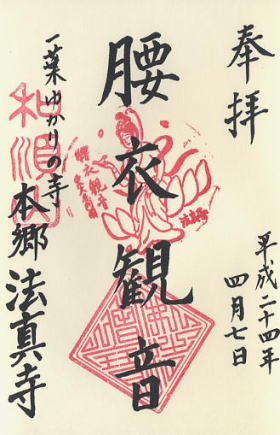 奉拝
平成二十四年
四月七日
腰衣観音
一葉ゆかりの寺
本郷 法真寺